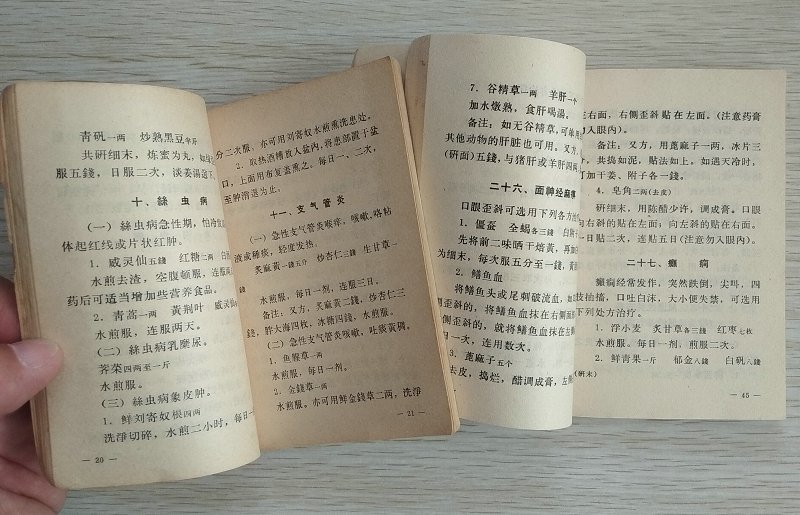 青矾一两　炒熟黑豆半斤
共研细末，炼蜜为丸，如
服五錢，日服二次，淡姜湯送下。
十、絲虫病
（一）絲虫病急性期，怕冷
体起红线或片状红肿。
1．威灵仙五錢　红糖二两　白
水煎去渣，空腹顿服，连服
药后可适当增加些营养食品。
2．青蒿一两　黄荆叶　威灵仙
水煎服，连服两天。
（二）絲虫病乳糜尿。
荠菜四两至一斤
水煎服。
（三）絲虫病象皮肿。
1．鲜刘寄奴根四两
洗淨切碎，水煎二小时，每日一
— 20 —
分二次服，亦可用刘寄奴水煎熏洗患处。
2．取热酒糟放入盆內，将患部置于盆
口，上面用布复盖熏之。每日一、二次，
至肿消退为止。
十一、支气管炎
（一）急性支气管炎喉痒，咳嗽，咯粘
液或稀痰，轻度发热。
炙麻黃一錢五分　炒杏仁三錢　生甘草一
錢
水煎服，每日一剂，连服三日。
备注：又方，炙麻黃二錢，炒杏仁三
錢，胖大海四枚，冰糖四錢，水煎服。
（二）急性支气管炎咳嗽，吐痰黃稠。
1．鱼腥草一两
水煎服，每日一剂。
2．金錢草一两
水煎服。亦可用鲜金錢草二两，洗淨
— 21 —
7．谷精草一两　羊肝一个
加水燉熟，食肝喝湯。
备注：如无谷精草，可
其他动物的肝脏也可用。又方，
（研面）五錢，与猪肝或羊肝四两
二十六、面神经麻痹
口眼歪斜可选用下列各方治
1．僵蚕　全蝎各三錢　白附子
先将前二味晒干焙黃，再加
为细末，每次服五分至一錢，黃
2．鳝鱼血
将鳝鱼头或尾刺破流血，如
歪斜的，将鳝鱼血抹在右侧面
侧歪斜的，就将鳝鱼血抹在左
日一次，连用数次。
3．蓖麻子五个
去皮，捣烂，醋调成膏，左
在右面，右侧歪斜贴在左面。（注意药膏
入眼內）。
备注：又方，用蓖麻子一两，冰片三
，共捣如泥，贴法如上，如遇天冷时，
加干姜、附子各一錢。
4．皂角二两（去皮）
研细末，用陈醋少许，调成膏。口眼
向右斜的贴在左面，向左斜的贴在右面。
一日贴二次，连贴五日（注意勿入眼內）。
二十七、癫　病
癫病经常发作，突然跌倒，尖叫，四
肢抽搐，口吐白沫，大小便失禁，可选用
下列处方治疗。
1．浮小麦　炙甘草各三錢　红枣七枚
水煎服，每日一剂、煎服二次。
2．鲜青果一斤　郁金八錢　白矾八錢
（研末）
— 45 —